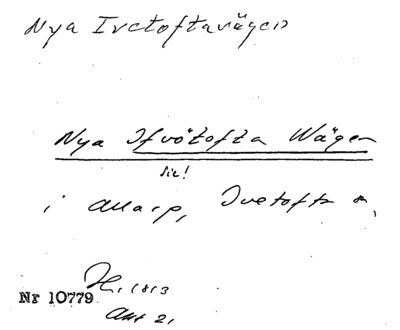 Nya Ivetoftavägen
Nya Ifvötofta Wägen
sic!
i Allarp, Ivetofta s,
H. 1813
Nr 10779
Akt 2,